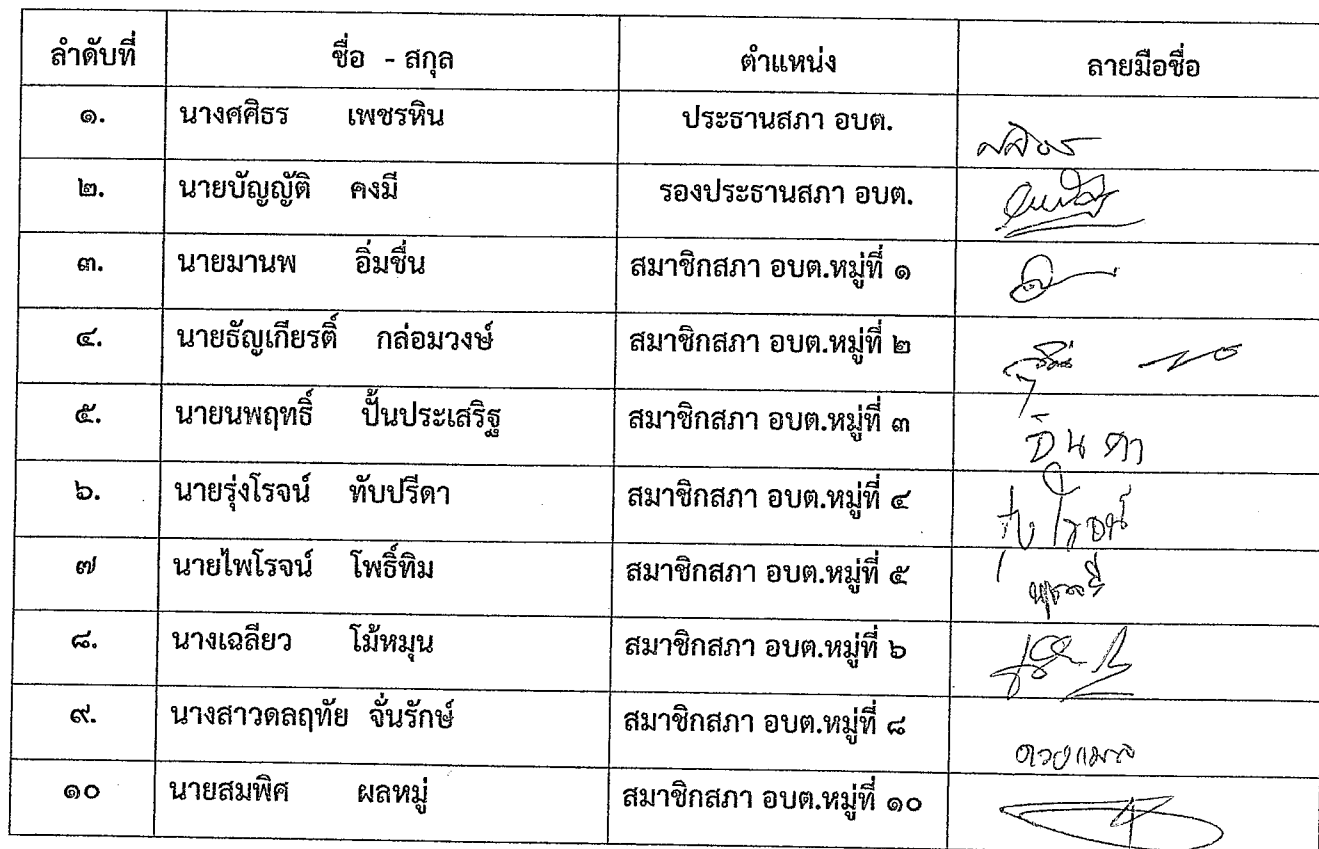 ลำดับที่ ชื่อ - สกุล ตำแหน่ง ลายมือชื่อ
๑. นางศศิธร เพชรหิน ประธานสภา อบต. ศศิธร
๒. นายบัญญัติ คงมี รองประธานสภา อบต.
๓. นายมานพ อิ่มชื่น สมาชิกสภา อบต.หมู่ที่ ๑
๔. นายธัญเกียรติ์ กล่อมวงษ์ สมาชิกสภา อบต.หมู่ที่ ๒
๕. นายนพฤทธิ์ ปั้นประเสริฐ สมาชิกสภา อบต.หมู่ที่ ๓
๖. นายรุ่งโรจน์ ทับปรีดา สมาชิกสภา อบต.หมู่ที่ ๔ รุ่งโรจน์
๗ นายไพโรจน์ โพธิ์ทิม สมาชิกสภา อบต.หมู่ที่ ๕
๘. นางเฉลียว โม้หมุน สมาชิกสภา อบต.หมู่ที่ ๖
๙. นางสาวดลฤทัย จั่นรักษ์ สมาชิกสภา อบต.หมู่ที่ ๘
๑๐ นายสมพิศ ผลหมู่ สมาชิกสภา อบต.หมู่ที่ ๑๐